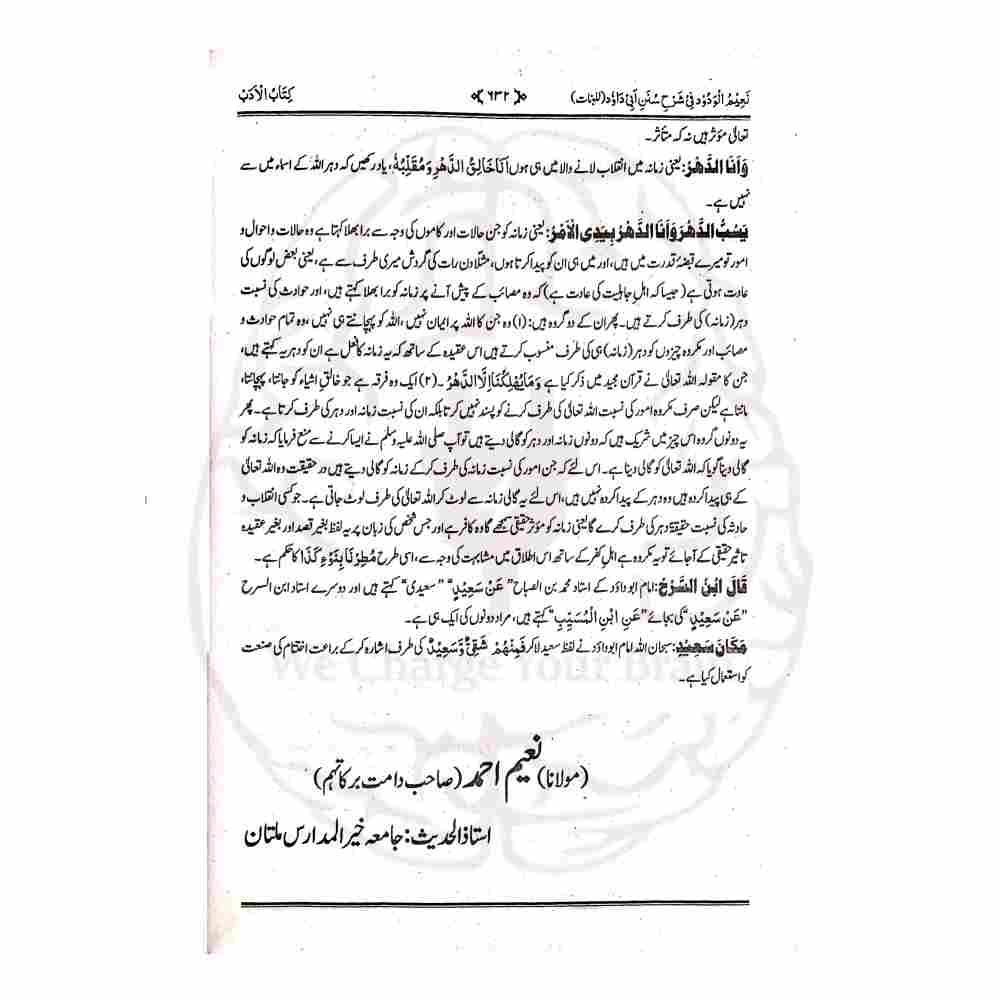 نَعِیْمُ الْوَدُوْد فِیْ شَرْحِ سُنَنِ اَبِیْ دَاوٗد (للبنات) ﴿۶۳۲﴾ کِتَابُ الْاَدَبْ
تعالیٰ مؤثر ہیں نہ کہ متأثر۔
وَاَنَا الدَّهْرُ: یعنی زمانہ میں انقلاب لانے والا میں ہی ہوں اَنَا خَالِقُ الدَّهْرِ وَمُقَلِّبُهٗ، یاد رکھیں کہ دہر اللہ کے اسماء میں سے
نہیں ہے۔
یَسُبُّ الدَّهْرَ وَاَنَا الدَّهْرُ بِیَدِی الْاَمْرُ: یعنی زمانہ کو جن حالات اور کاموں کی وجہ سے برا بھلا کہتا ہے وہ حالات و احوال و
امور تو میرے قبضۂ قدرت میں ہیں، اور میں ہی ان کو پیدا کرتا ہوں، مثلاً دن رات کی گردش میری طرف سے ہے، یعنی بعض لوگوں کی
عادت ہوتی ہے (جیسا کہ اہلِ جاہلیت کی عادت ہے) کہ وہ مصائب کے پیش آنے پر زمانہ کو برا بھلا کہتے ہیں، اور حوادث کی نسبت
دہر (زمانہ) کی طرف کرتے ہیں۔ پھر ان کے دو گروہ ہیں: (۱) وہ جن کا اللہ پر ایمان نہیں، اللہ کو پہچانتے ہی نہیں، وہ تمام حوادث و
مصائب اور مکروہ چیزوں کو دہر (زمانہ) ہی کی طرف منسوب کرتے ہیں اس عقیدہ کے ساتھ کہ یہ زمانہ کا فعل ہے ان کو دہریہ کہتے ہیں،
جن کا مقولہ اللہ تعالیٰ نے قرآن مجید میں ذکر کیا ہے وَمَا یُهْلِکُنَا اِلَّا الدَّهْرُ۔ (۲) ایک وہ فرقہ ہے جو خالقِ اشیاء کو جانتا، پہچانتا،
مانتا ہے لیکن صرف مکروہ امور کی نسبت اللہ تعالیٰ کی طرف کرنے کو پسند نہیں کرتا بلکہ ان کی نسبت زمانہ اور دہر کی طرف کرتا ہے۔ پھر
یہ دونوں گروہ اس چیز میں شریک ہیں کہ دونوں زمانہ اور دہر کو گالی دیتے ہیں تو آپ صلی اللہ علیہ وسلم نے ایسا کرنے سے منع فرمایا کہ زمانہ کو
گالی دینا گویا کہ اللہ تعالیٰ کو گالی دینا ہے۔ اس لئے کہ جن امور کی نسبت زمانہ کی طرف کر کے زمانہ کو گالی دیتے ہیں درحقیقت وہ اللہ تعالیٰ
کے ہی پیدا کردہ ہیں وہ دہر کے پیدا کردہ نہیں ہیں، اس لئے یہ گالی زمانہ سے لوٹ کر اللہ تعالیٰ کی طرف لوٹ جاتی ہے۔ جو کسی انقلاب و
حادثہ کی نسبت حقیقۃً دہر کی طرف کرے گا یعنی زمانہ کو مؤثر حقیقی سمجھے گا وہ کافر ہے اور جس شخص کی زبان پر یہ لفظ بغیر قصد اور بغیر عقیدہ
تاثیر حقیقی کے آجائے تو یہ مکروہ ہے اہلِ کفر کے ساتھ اس اطلاق میں مشابہت کی وجہ سے، اسی طرح مُطِرْنَا بِنَوْءِ کَذَا کا حکم ہے۔
قَالَ ابْنُ السَّرْحِ: امام ابوداؤد کے استاد محمد بن الصباح "عَنْ سَعِیْدٍ" "سعیدی" کہتے ہیں اور دوسرے استاد ابن السرح
"عَنْ سَعِیْدٍ" کی بجائے "عَنِ ابْنِ الْمُسَیِّبِ" کہتے ہیں، مراد دونوں کی ایک ہی ہے۔
مَکَانَ سَعِیْدٍ: سبحان اللہ امام ابوداؤد نے لفظ سعید لا کر فَمِنْهُمْ شَقِیٌّ وَّسَعِیْدٌ کی طرف اشارہ کر کے براعت اختتام کی صنعت
کو استعمال کیا ہے۔
We Charge Your Bra
(مولانا) نعیم احمد (صاحب دامت برکاتہم)
استاذ الحدیث: جامعہ خیر المدارس ملتان